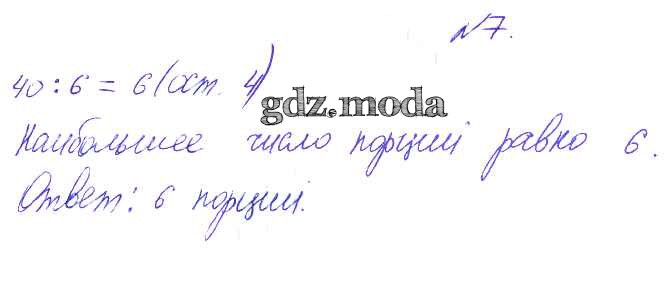 №7.
40 : 6 = 6 (ост. 4)
gdz.moda
Наибольшее число порций равно 6.
Ответ: 6 порций.